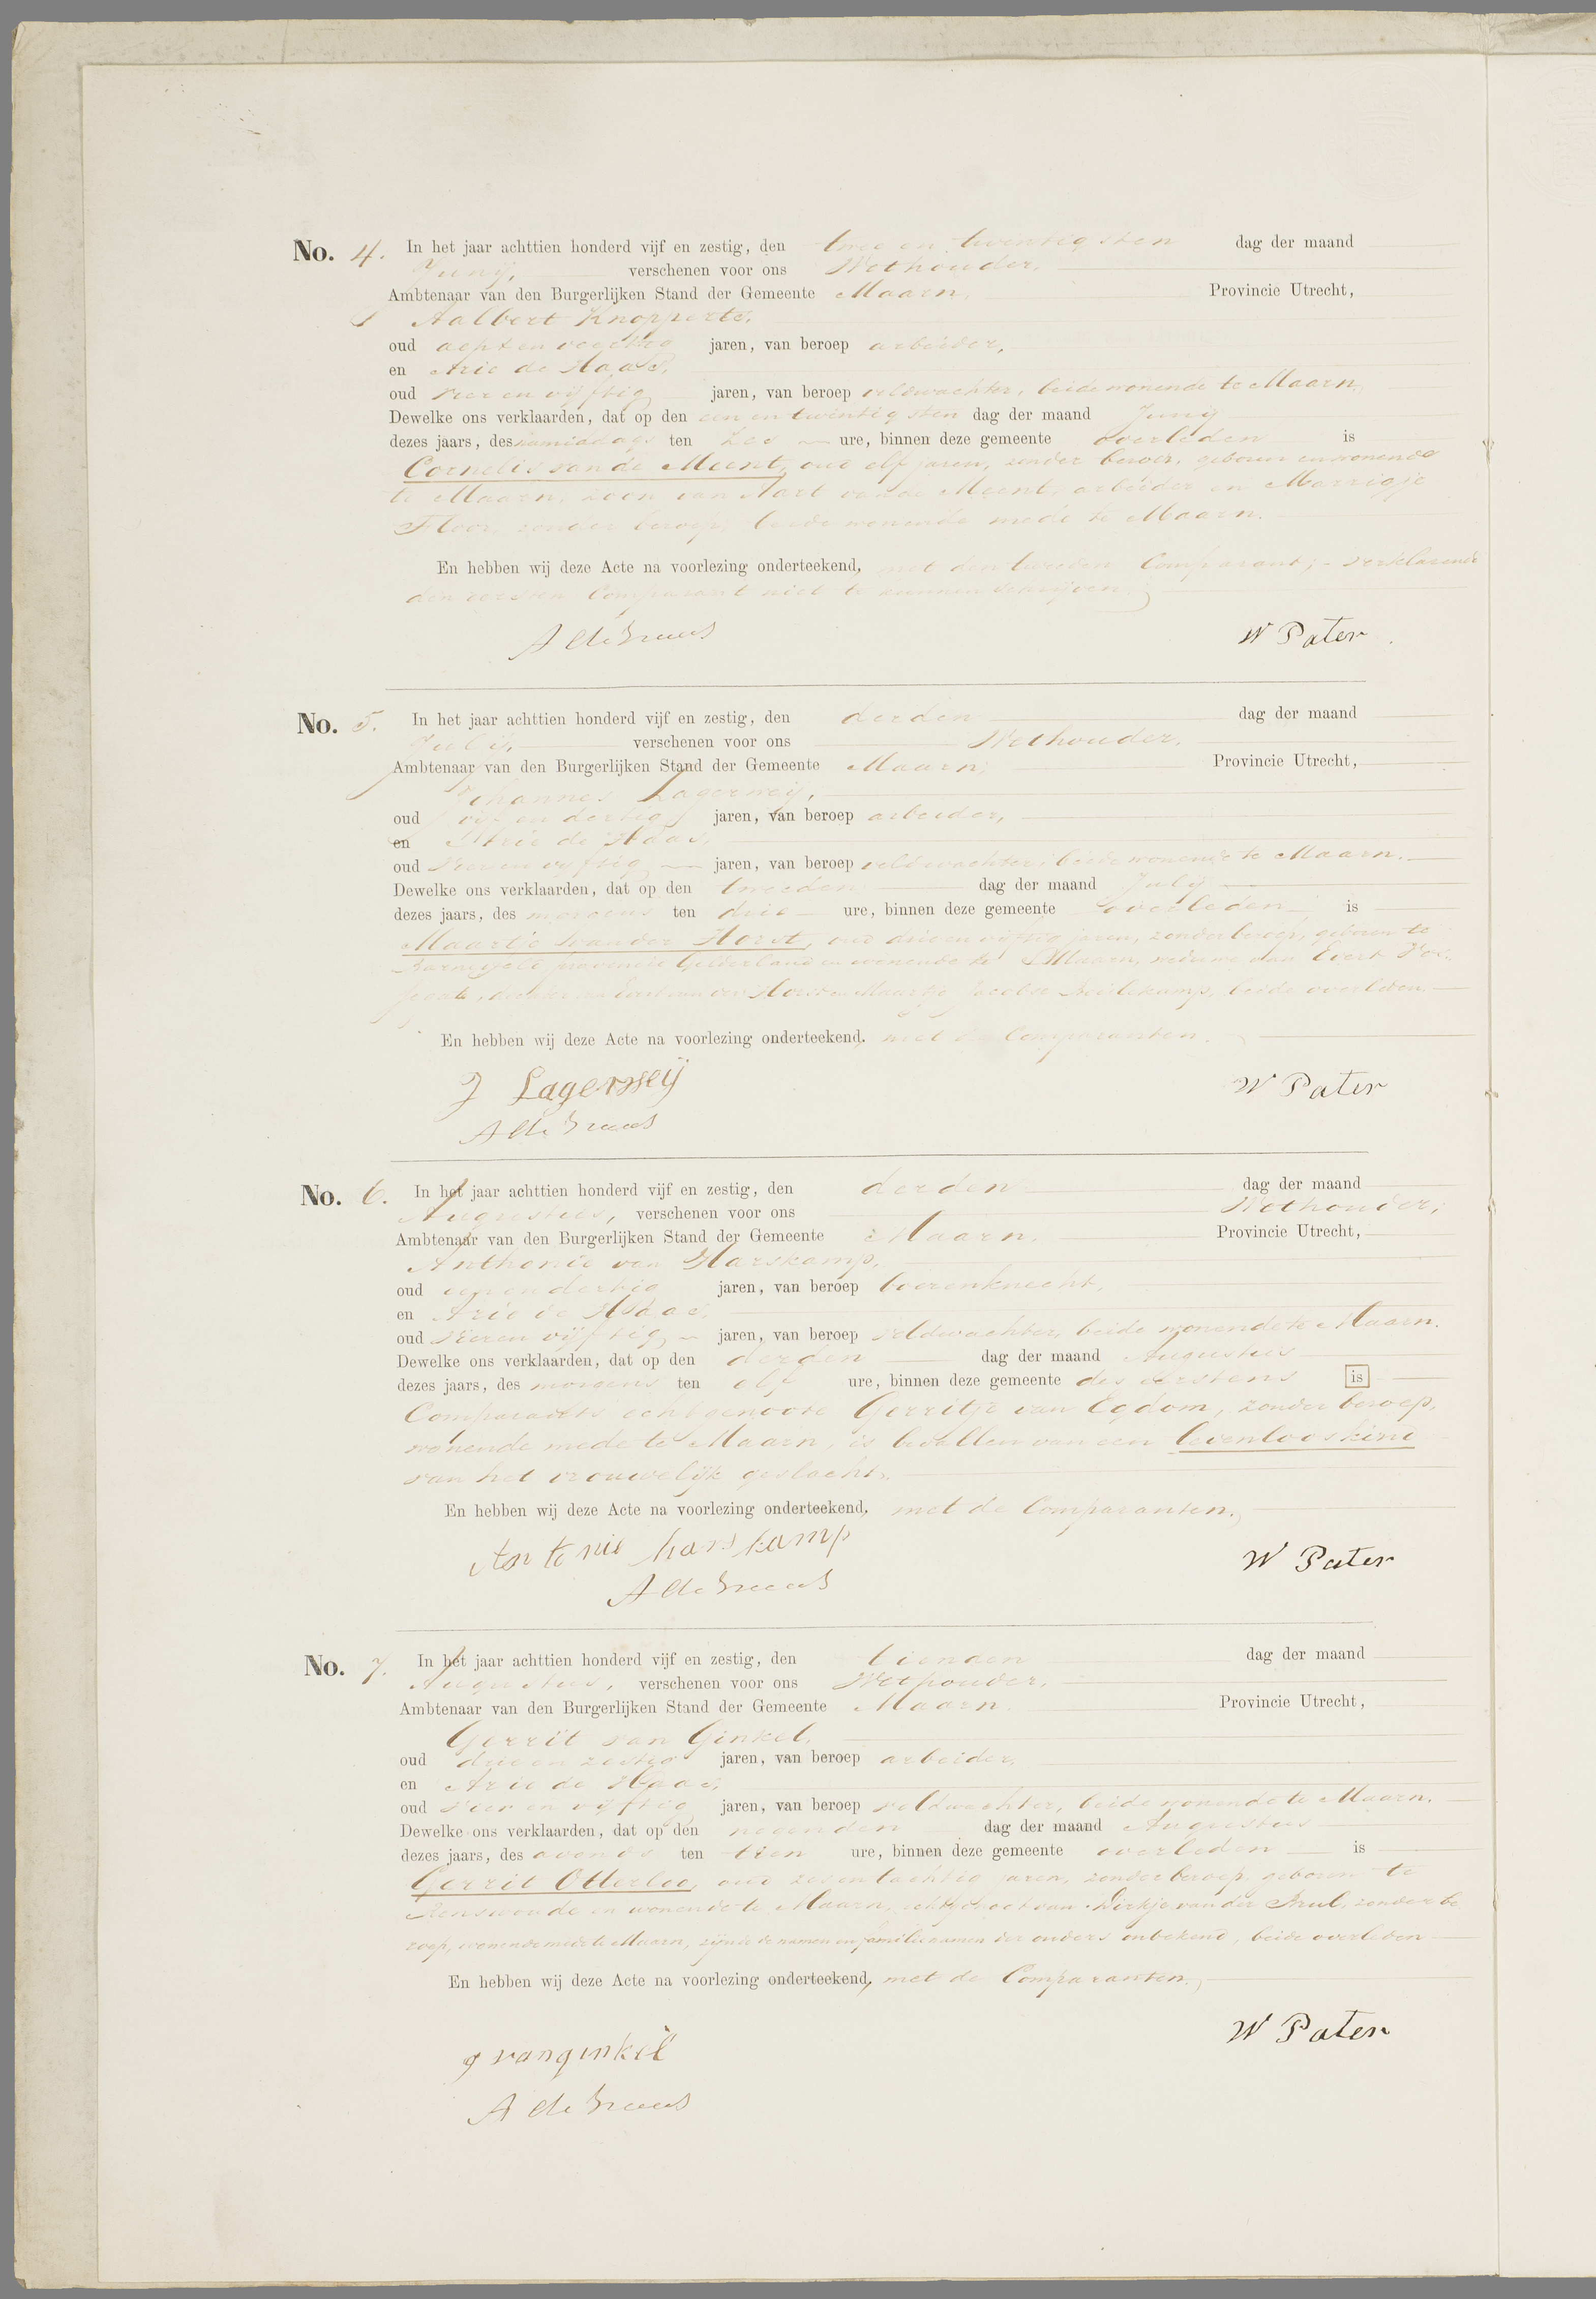 No. 4. In het jaar achttien honderd vijf en zestig, den twee en twentigsten dag der maand
Junij, verschenen voor ons Wethouder,
Ambtenaar van den Burgerlijken Stand der Gemeente Maarn, Provincie Utrecht,
Aalbert Knopperts,
oud acht en veertig jaren, van beroep arbeider,
en Arie de Haas,
oud vier en vijftig jaren, van beroep veldwachter, beide wonende te Maarn,
Dewelke ons verklaarden, dat op den een en twintigsten dag der maand Junij
dezes jaars, des namiddags ten zes ure, binnen deze gemeente overleden is
Cornelis van de Meent, oud elf jaren, zonder beroep, geboren en wonende
te Maarn, zoon van Aart van de Meent, arbeider en Marrigje
Floor, zonder beroep, beide wonende mede te Maarn.
En hebben wij deze Acte na voorlezing onderteekend, met den tweeden Comparant; verklarende
den eersten Comparant niet te kunnen schrijven.
A de Haas W Pater
No. 5. In het jaar achttien honderd vijf en zestig, den derden dag der maand
Julij, verschenen voor ons Wethouder,
Ambtenaar van den Burgerlijken Stand der Gemeente Maarn, Provincie Utrecht,
Johannes Lagerweij,
oud vijf en dertig jaren, van beroep arbeider,
en Arie de Haas,
oud vier en vijftig jaren, van beroep veldwachter, beide wonende te Maarn.
Dewelke ons verklaarden, dat op den tweeden dag der maand Julij
dezes jaars, des morgens ten drie ure, binnen deze gemeente overleden is
Maartje van der Horst, oud drie en vijftig jaren, zonder beroep, geboren te
Barneveld provincie Gelderland en wonende te Maarn, weduwe van Evert
dochter van Evert van der Horst en Maartje Jacobse beide overleden.
En hebben wij deze Acte na voorlezing onderteekend, met de Comparanten.
J Lagerweij W Pater
A de Haas
No. 6. In het jaar achttien honderd vijf en zestig, den derden dag der maand
Augustus, verschenen voor ons Wethouder,
Ambtenaar van den Burgerlijken Stand der Gemeente Maarn. Provincie Utrecht,
Anthonie van Harskamp,
oud een en dertig jaren, van beroep boerenknecht,
en Arie de Haas,
oud vier en vijftig jaren, van beroep veldwachter, beide wonende te Maarn.
Dewelke ons verklaarden, dat op den derden dag der maand Augustus
dezes jaars, des morgens ten elf ure, binnen deze gemeente des eerstens is
Comparants echtgenoote Gerritje van Egdom, zonder beroep,
wonende mede te Maarn, is bevallen van een levenloos kind
van het vrouwelijk geslacht.
En hebben wij deze Acte na voorlezing onderteekend, met de Comparanten.
Antonie harskamp W Pater
A de Haas
No. 7. In het jaar achttien honderd vijf en zestig, den tienden dag der maand
Augustus, verschenen voor ons Wethouder,
Ambtenaar van den Burgerlijken Stand der Gemeente Maarn. Provincie Utrecht,
Gerrit van Ginkel,
oud drie en zestig jaren, van beroep arbeider,
en Arie de Haas,
oud vier en vijftig jaren, van beroep veldwachter, beide wonende te Maarn.
Dewelke ons verklaarden, dat op den negenden dag der maand Augustus
dezes jaars, des avonds ten tien ure, binnen deze gemeente overleden is
Gerrit Otterloo, oud zes en tachtig jaren, zonder beroep, geboren te
Renswoude en wonende te Maarn, echtgenoot van Dirkje van der Brul, zonder be
roep, wonende mede te Maarn, zijnde de namen en familienamen der ouders onbekend, beide overleden
En hebben wij deze Acte na voorlezing onderteekend, met de Comparanten.
g van ginkel W Pater
A de Haas